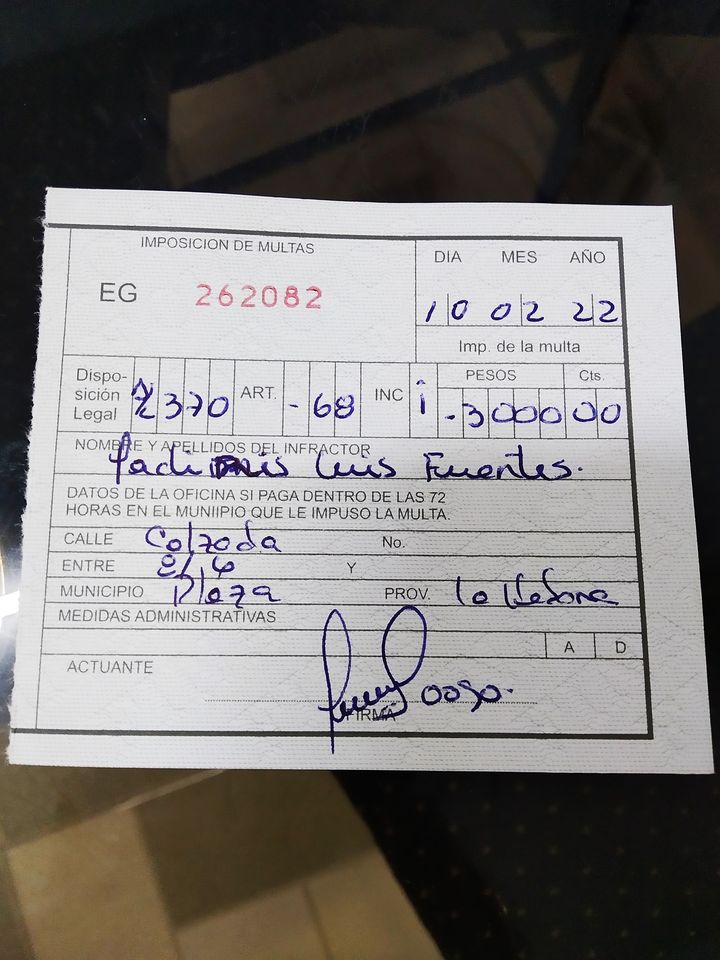 IMPOSICION DE MULTAS
DIA MES AÑO
EG 262082
10 02 22
Imp. de la multa
Dispo-
sición
Legal 370 ART. - 68 INC i
PESOS Cts.
-3000 00
NOMBRE Y APELLIDOS DEL INFRACTOR
Luis Fuentes.
DATOS DE LA OFICINA SI PAGA DENTRO DE LAS 72
HORAS EN EL MUNIIPIO QUE LE IMPUSO LA MULTA.
CALLE Calzada No.
ENTRE 2/4 Y
MUNICIPIO Plaza PROV. La Habana
MEDIDAS ADMINISTRATIVAS
A D
ACTUANTE
FIRMA